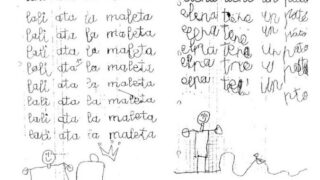 lali ata la maleta
lali ata ia maleta
lali ata la maleta
lali ata la maleta
lali ata la maleta
lali ata la maleta
lali ata la maleta
lali ata ia maleta
elena tene un pato
elena tene un pato
tene un
elna tene un
elna un
elna un
pto